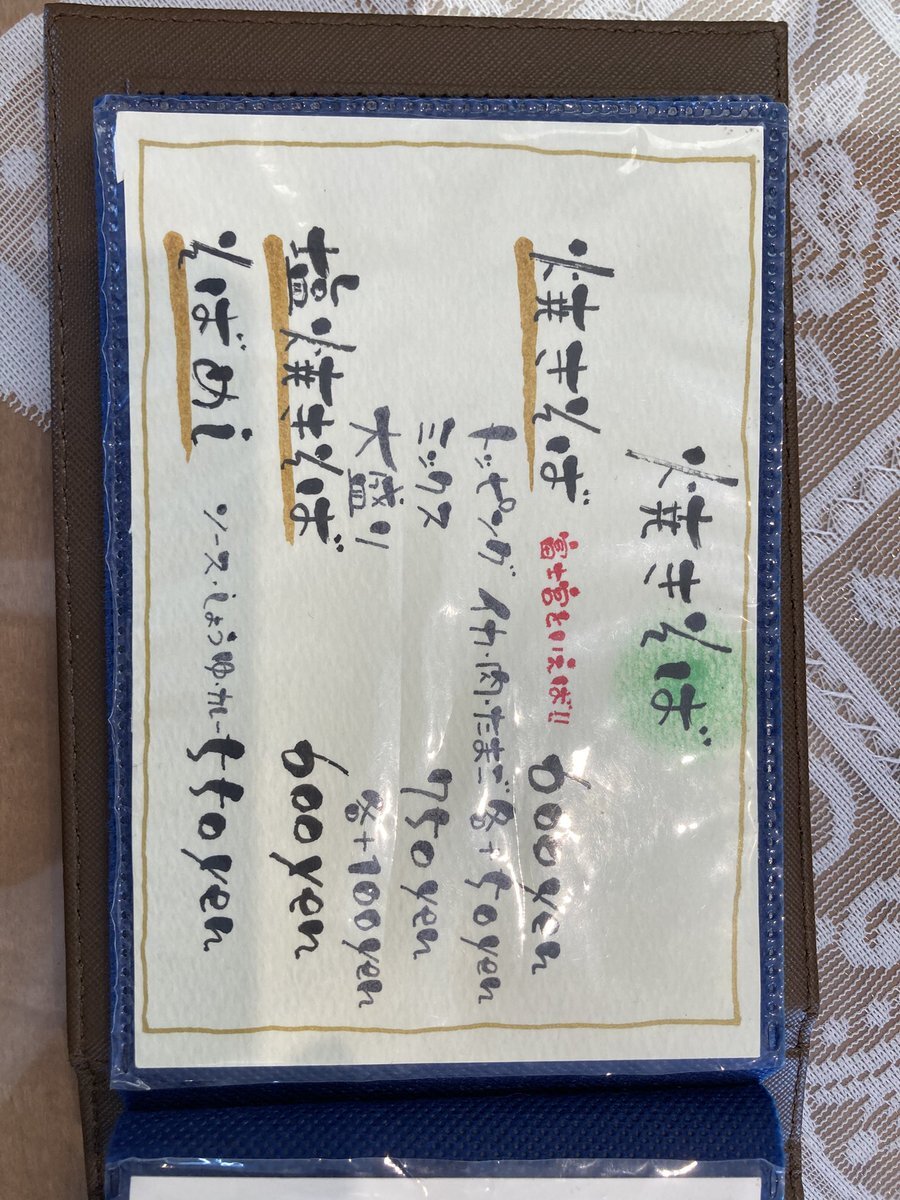 焼きそば
焼きそば 富士宮といえば!! 600yen
トッピング イカ・肉・たまご 各+50yen
ミックス 750yen
大盛り 各+100yen
塩焼きそば 600yen
そばめし ソース・しょうゆ・カレー 550yen